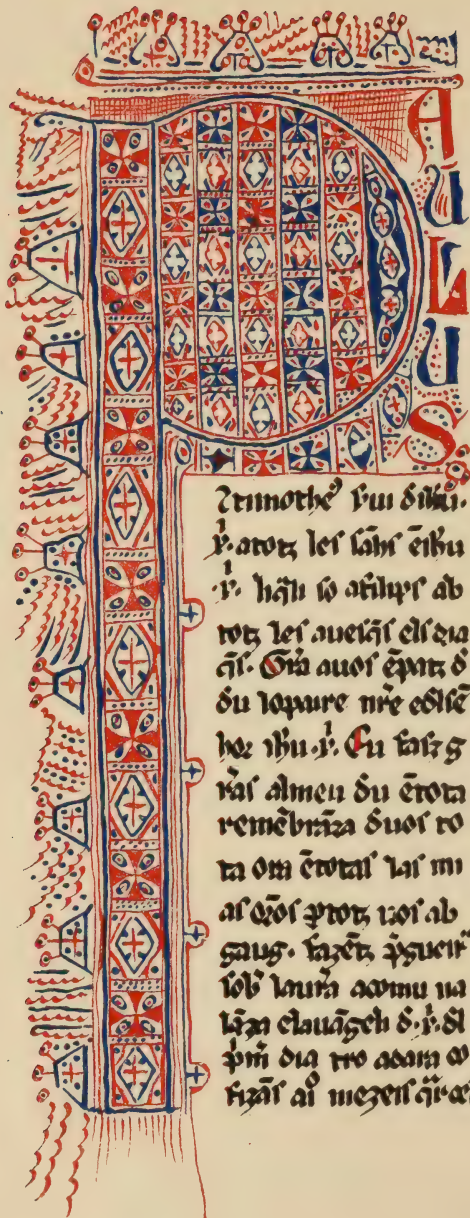 PAULUS
⁊ timotheꝰ s̄ui d̄ ih̄u.
x̄. a totz les sāhs ē ih̄u
x̄. liq̄li so a filips ab
totz les auesq̄s els dia
q̄s. Gr̄a a uos e patz d̄
d̄u lo paire nr̄e e d̄l sē
hor ih̄u. x̄. Eu fas g
r̄as al meu d̄u ē tota
remēbrāza d̄ uos to
ta ora ē totas las mi
as or̄os ꝑ totz uos ab
gaug. fazētz p̄gueir̄
sob̄ la ur̄a acomu na
lāza el auāgeli d̄. x̄. d̄l
p̄m̄ dia tro adara co
fizās aiso mezeis q̄r cel